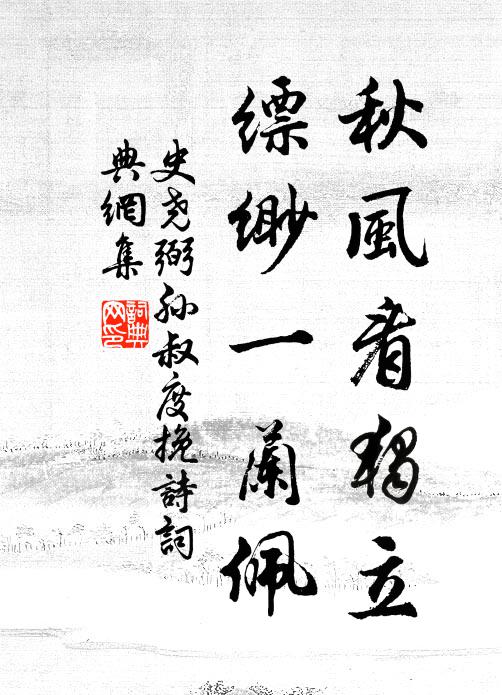 秋風看獨立
縹緲一蘭佩
史尧弼孙叔度挽詩詞
典網集
詞典
网印